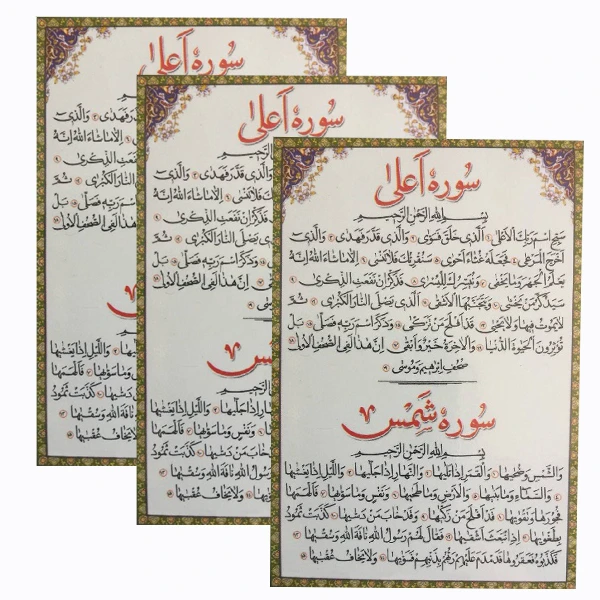 سورهٔ أعلیٰ
بِسْمِ اللهِ الرَّحْمٰنِ الرَّحِيمِ
سَبِّحِ اسْمَ رَبِّكَ الْأَعْلَى ۱ الَّذِي خَلَقَ فَسَوَّى ۲ وَالَّذِي قَدَّرَ فَهَدَى ۳ وَالَّذِي
أَخْرَجَ الْمَرْعَى ۴ فَجَعَلَهُ غُثَاءً أَحْوَى ۵ سَنُقْرِئُكَ فَلَا تَنْسَى ۶ إِلَّا مَا شَاءَ اللهُ إِنَّهُ
يَعْلَمُ الْجَهْرَ وَمَا يَخْفَى ۷ وَنُيَسِّرُكَ لِلْيُسْرَى ۸ فَذَكِّرْ إِنْ نَفَعَتِ الذِّكْرَى ۹
سَيَذَّكَّرُ مَنْ يَخْشَى ۱۰ وَيَتَجَنَّبُهَا الْأَشْقَى ۱۱ الَّذِي يَصْلَى النَّارَ الْكُبْرَى ۱۲ ثُمَّ
لَا يَمُوتُ فِيهَا وَلَا يَحْيَى ۱۳ قَدْ أَفْلَحَ مَنْ تَزَكَّى ۱۴ وَذَكَرَ اسْمَ رَبِّهِ فَصَلَّى ۱۵ بَلْ
تُؤْثِرُونَ الْحَيٰوةَ الدُّنْيَا ۱۶ وَالْآخِرَةُ خَيْرٌ وَأَبْقَى ۱۷ إِنَّ هٰذَا لَفِي الصُّحُفِ الْأُولَى ۱۸
صُحُفِ إِبْرٰهِيمَ وَمُوسَى ۱۹
سورهٔ شمس
بِسْمِ اللهِ الرَّحْمٰنِ الرَّحِيمِ
وَالشَّمْسِ وَضُحٰيهَا ۱ وَالْقَمَرِ إِذَا تَلٰيهَا ۲ وَالنَّهَارِ إِذَا جَلّٰيهَا ۳ وَاللَّيْلِ إِذَا يَغْشٰيهَا
۴ وَالسَّمَاءِ وَمَا بَنٰيهَا ۵ وَالْأَرْضِ وَمَا طَحٰيهَا ۶ وَنَفْسٍ وَمَا سَوّٰيهَا ۷ فَأَلْهَمَهَا
فُجُورَهَا وَتَقْوٰيهَا ۸ قَدْ أَفْلَحَ مَنْ زَكّٰيهَا ۹ وَقَدْ خَابَ مَنْ دَسّٰيهَا ۱۰ كَذَّبَتْ ثَمُودُ
بِطَغْوٰيهَا ۱۱ إِذِ انْبَعَثَ أَشْقٰيهَا ۱۲ فَقَالَ لَهُمْ رَسُولُ اللهِ نَاقَةَ اللهِ وَسُقْيٰهَا ۱۳
فَكَذَّبُوهُ فَعَقَرُوهَا فَدَمْدَمَ عَلَيْهِمْ رَبُّهُمْ بِذَنْبِهِمْ فَسَوّٰيهَا ۱۴ وَلَا يَخَافُ عُقْبٰيهَا ۱۵